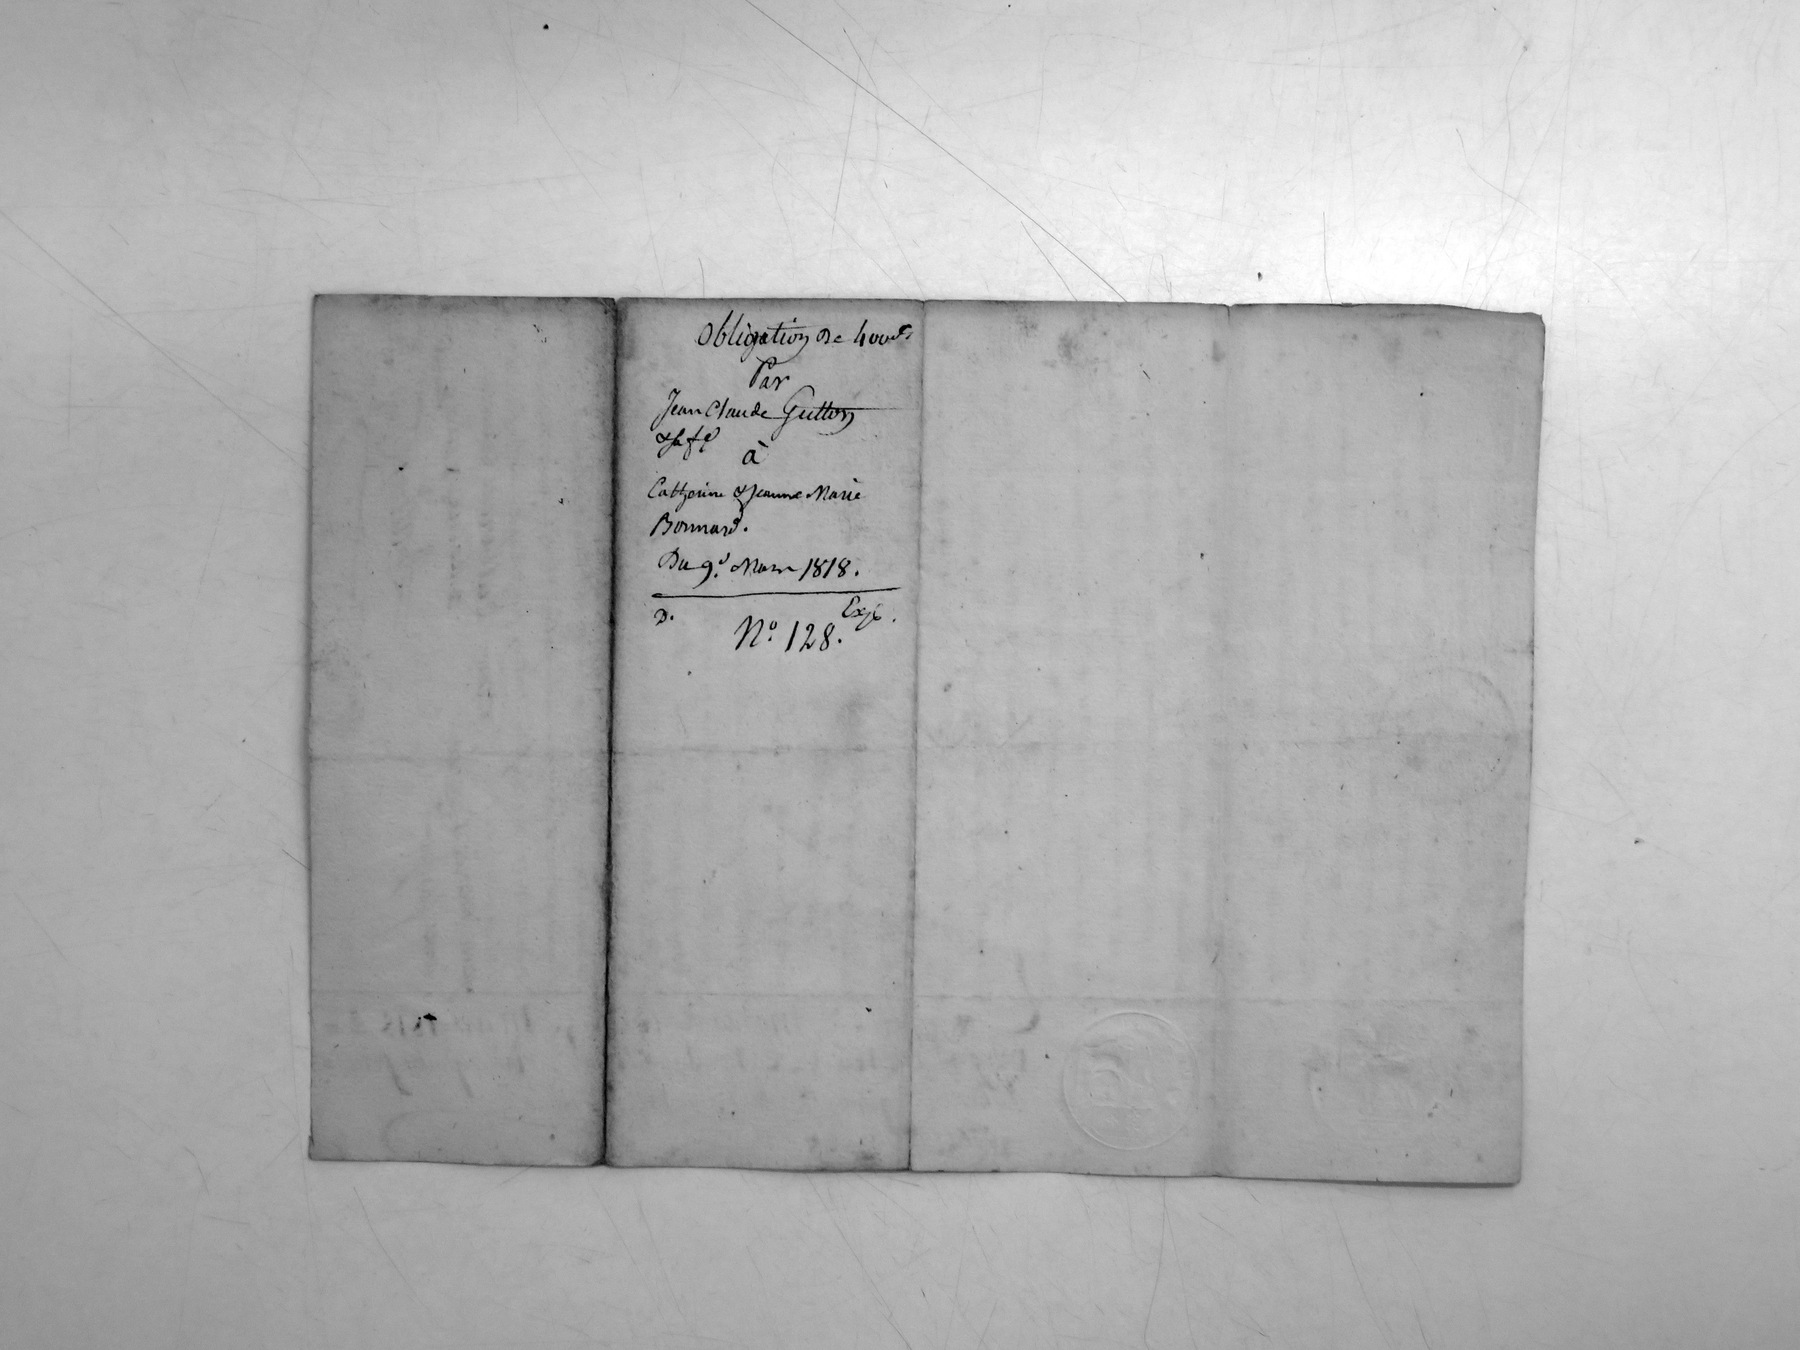 Obligation De 400f.
Par
Jean Claude Gutton
& sa fe
à
Catherine & Jeanne Marie
Bonnard.
Du 9. Mars 1818.
D. Exp.
No. 128.